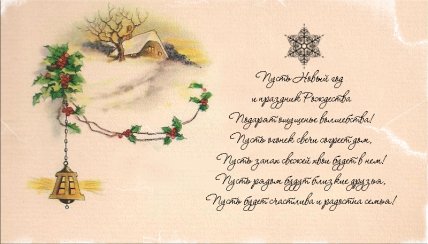 Пусть Новый год
и праздник Рождества
Подарат ощущенье волшебства!
Пусть огонек свечи согреет дом,
Пусть запах свежей хвои будет в нем!
Пусть рядом будут близкие друзья,
Пусть будет счастлива и радостна семья!